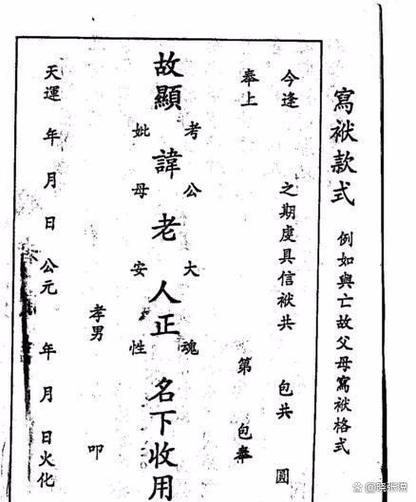 寫袱款式 例如與亡故父母寫袱格式
今逢 之期虔具信袱共 包共 圓
奉上 第 包奉
考公大魂
故顯 諱老人正 名下收用
妣母安性
孝男 叩
天運 年 月 日 公元 年 月 日火化